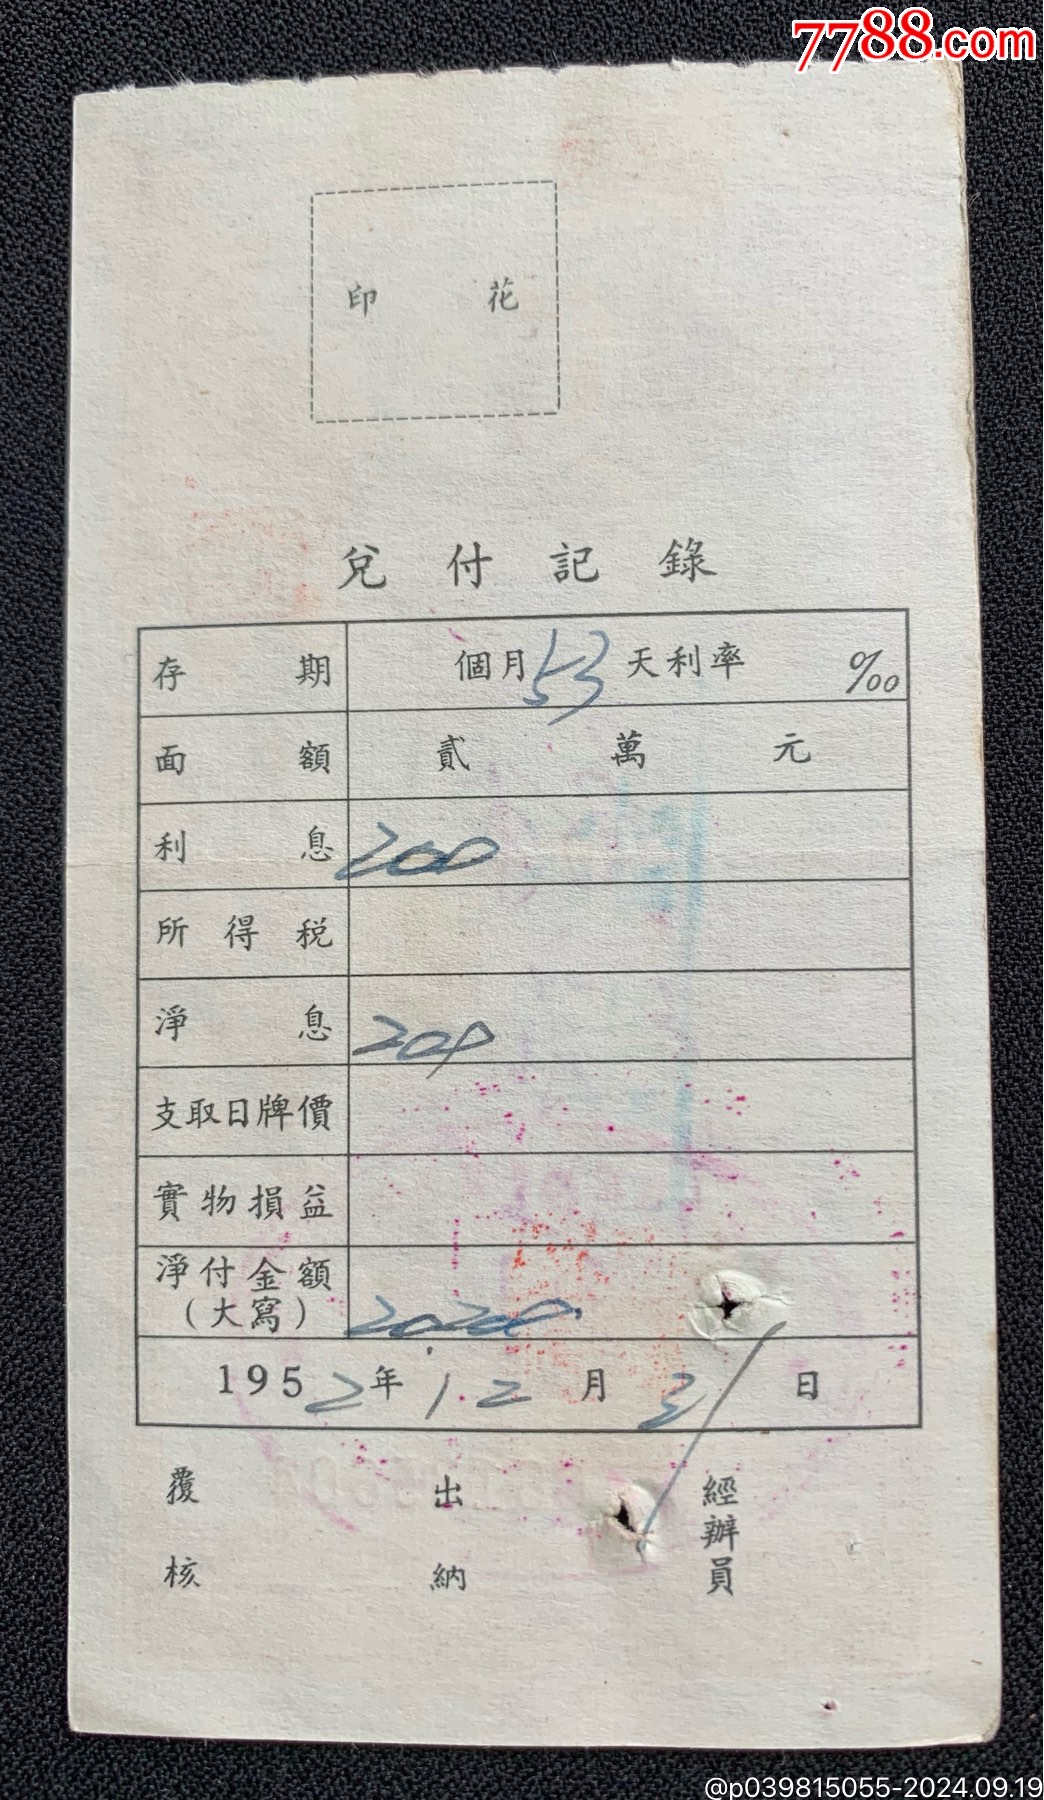 7788.com
印 花
兌付記錄
存期 個月53天利率 ‰
面額 貳萬元
利息 200
所得税
淨息 200
支取日牌價
實物損益
淨付金額 20200
(大寫)
1952年12月31日
覆核 出納 經辦員
@p039815055-2024.09.19